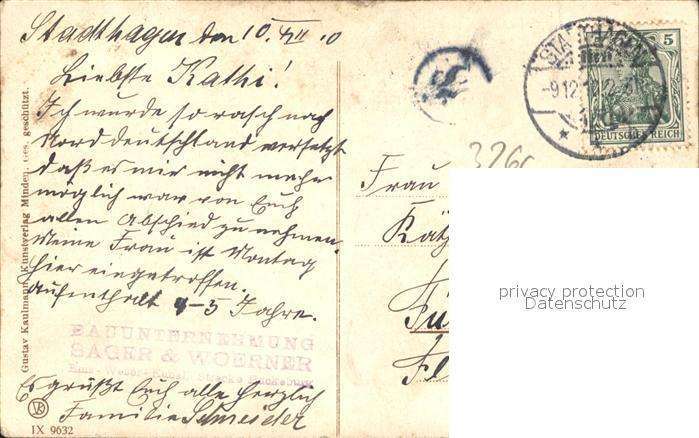 Stadthagen den 10. XII 10
Liebste Kathi!
Ich wurde so rasch nach
Norddeutschland versetzt
daß es mir nicht mehr
möglich war von Euch
allen Abschied zu nehmen.
Meine Frau ist Montag
hier eingetroffen.
Aufenthalt 4-5 Jahre.
BAUUNTERNEHMUNG
SAGER & WOERNER
Es grüßt Euch alle herzlich
Familie Schneider
IX 9632
Gustav Kaulmann, Kunstverlag Minden. Ges. geschützt.
STADTHAGEN
-9.12.
5
DEUTSCHES REICH
Frau
privacy protection
Datenschutz